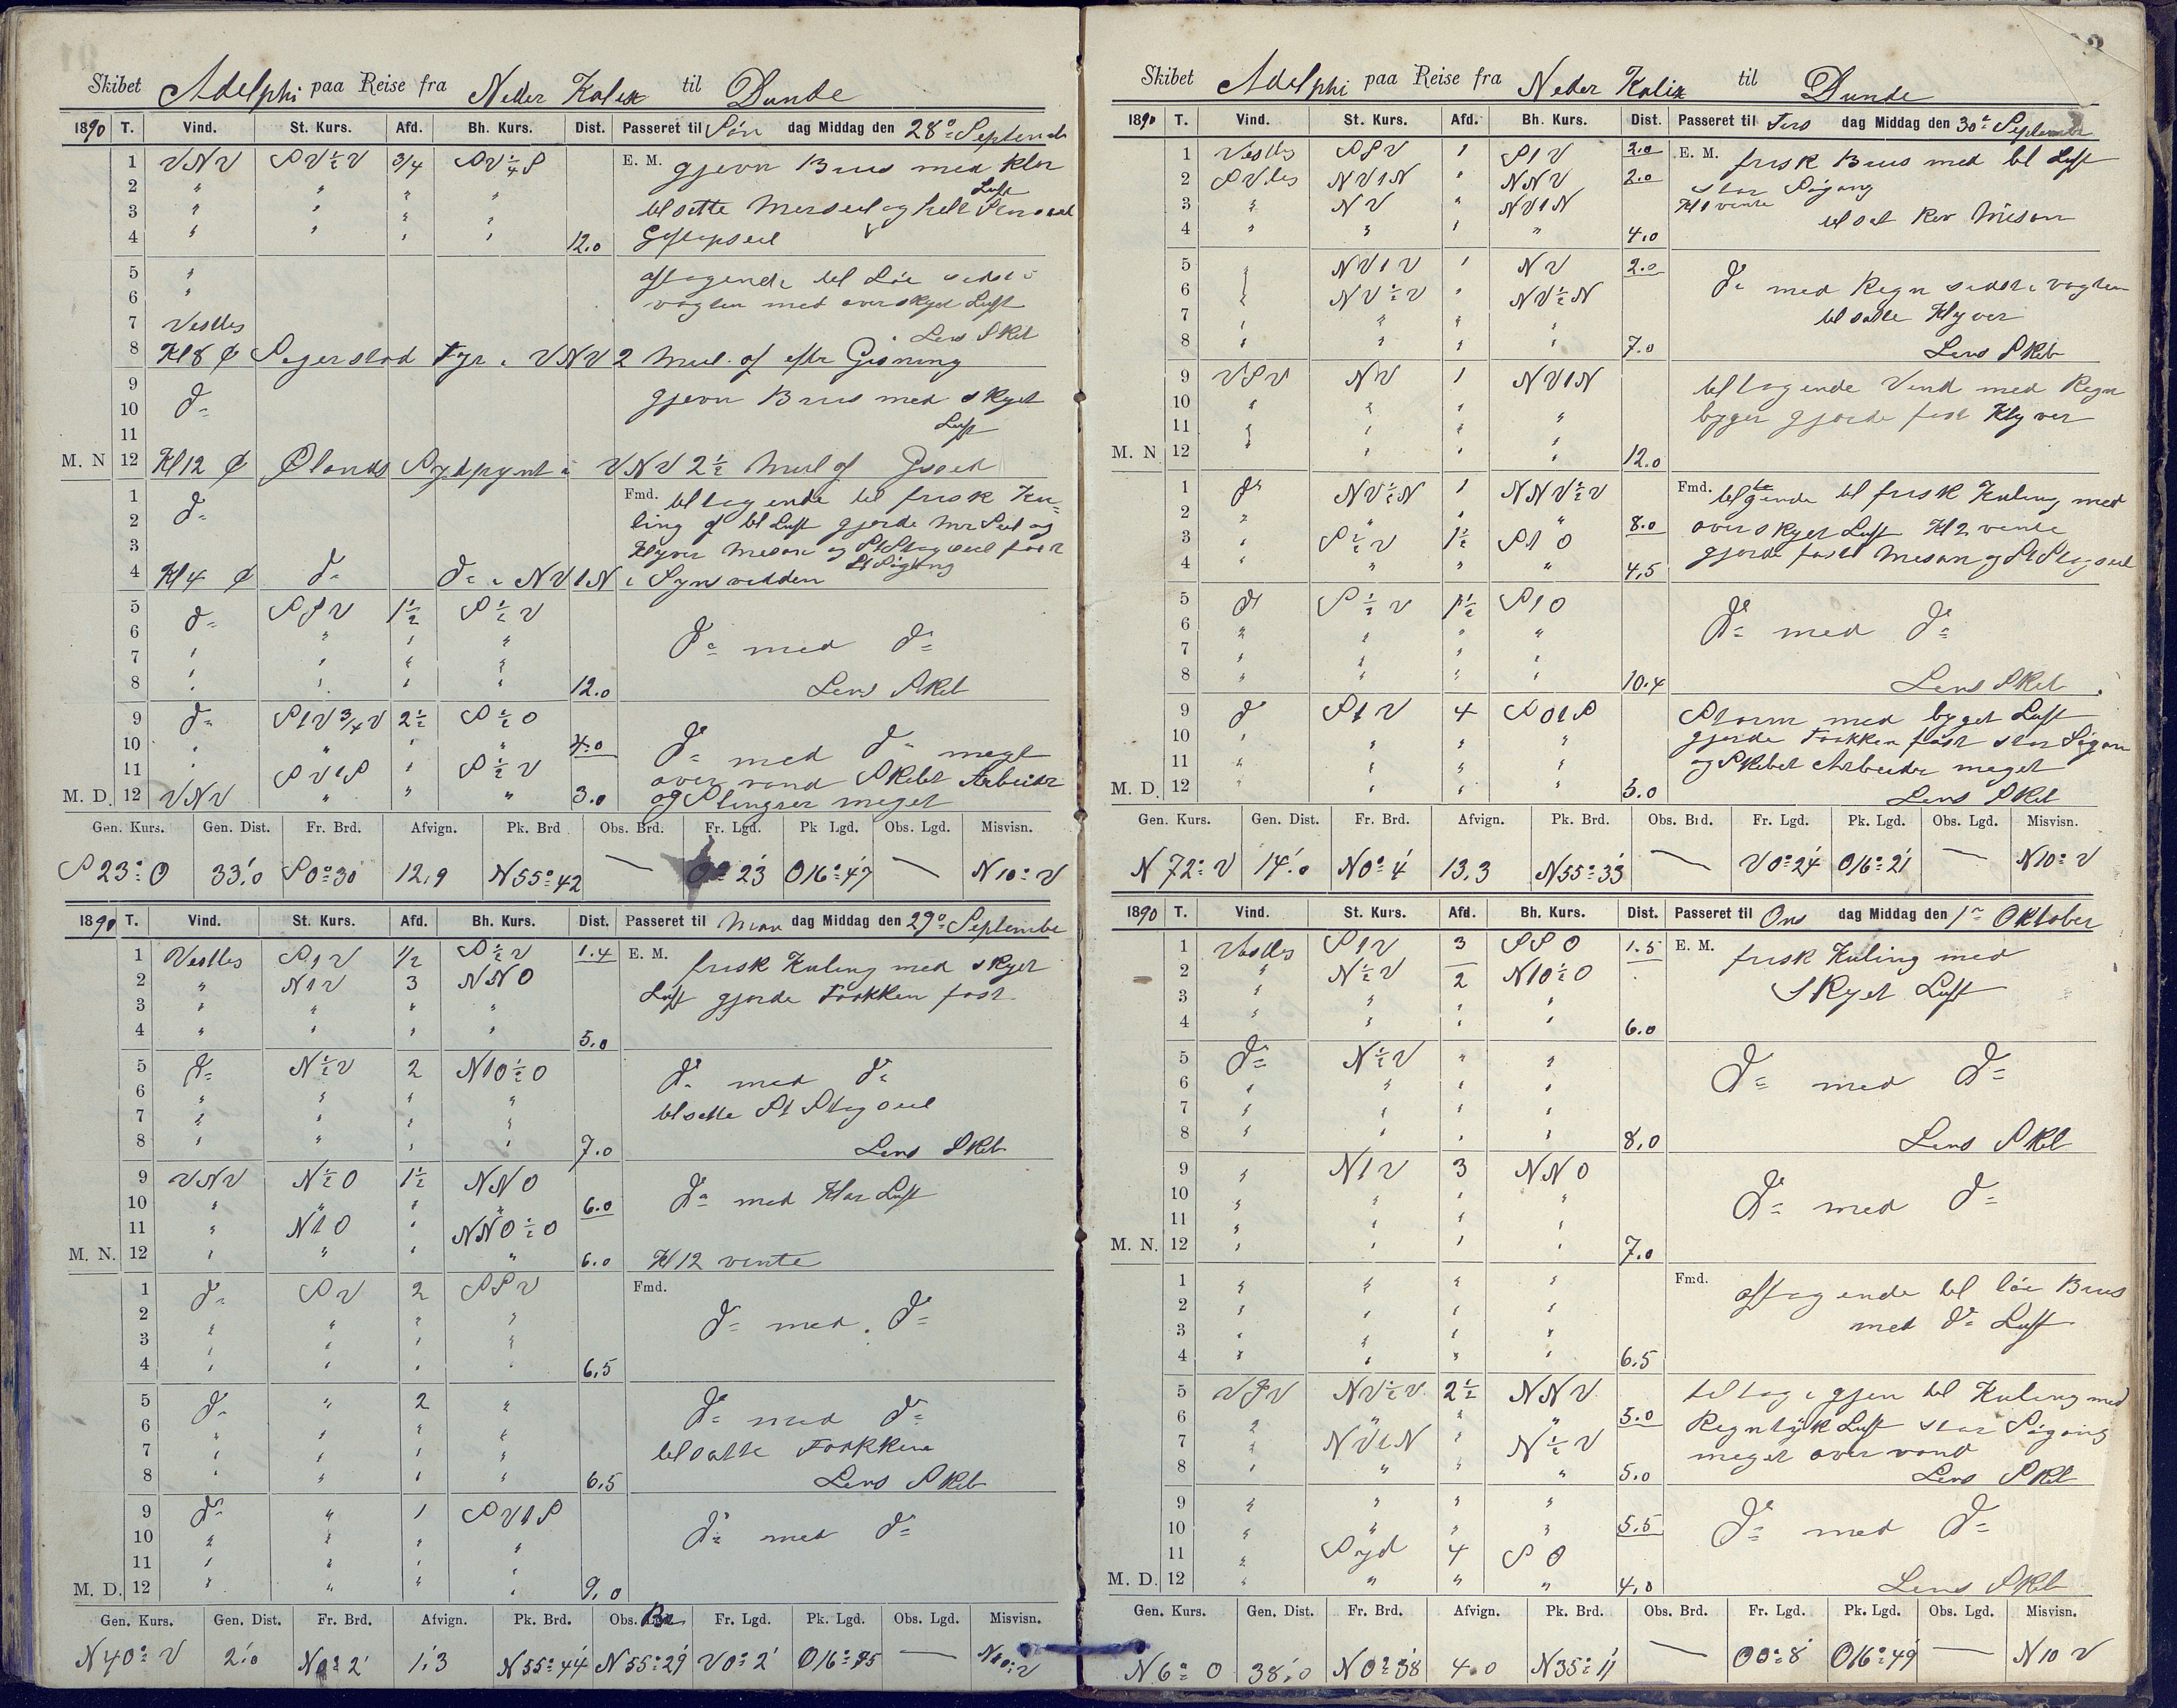 Skibet Adelphi paa Reise fra Neder Kalix til Dunde
1890 T. Vind. St. Kurs. Afd. Bh. Kurs. Dist. Passeret til Søn dag Middag den 28de September
1 VNV SV½V 3/4 SV¼S E. M. gjevn Bris med klar
2 " " " " Luft
3 " " " " tilsatte Merseil og
4 " " " " 12.0 Gaftopseil
5 " aftagende til Löi sidst i
6 " vagten med overskyet Luft
7 Vestlig Lens Skib
8 Kl 8 ¢ Segerstad Fyr i VNV 2 Mil af efter Gisning
9 gjevn Bris med skyet
10 do
11 Luft
M. N 12 Kl 12 ¢ Ølands Sydpynt i VNV 2½ Mil af Gisset
1 Fmd. tiltagende til frisk Ku-
2 do ling og bl Luft gjorde Mrs Seil og
3 Klyver Mesan og St Stagseil fast
4 Kl 4 ¢ do do i NV1N i Synsvidden St Sögang
5 do SSV 1½ S½V
6 " " " do med do
7 " " " "
8 " " " " 12.0 Lens Skib
9 do S1V3/4V 2½ S½O
10 " " " " 4.0 do med do meget
11 " SV1S " S½V over vand Skibet Arbeider
M. D. 12 VNV " " " 3.0 og Slingrer meget
Gen. Kurs. Gen. Dist. Fr. Brd. Afvign. Pk. Brd Obs. Brd. Fr. Lgd. Pk Lgd. Obs. Lgd. Misvisn.
S 23° O 33.0 S0°30 12.9 N55°42 — 0°23 O16°47 — N10°V
1890 T. Vind. St. Kurs. Afd. Bh. Kurs. Dist. Passeret til Man dag Middag den 29de September
1 Vestlig S1V ½ S½V 1.4 E. M. frisk Kuling med skyet
2 " N1V 3 NNO
3 " " " " Luft gjorde Fokken fast
4 " " " " 5.0
5 do N½V 2 N1O½O do med do
6 " " " "
7 " " " " tilsatte St Stagseil
8 " " " " 7.0 Lens Skib
9 VNV N½O 1½ NNO
10 " " " " 6.0 do med Klar Luft
11 " N1O " NNO½O
M. N. 12 " " " " 6.0 Kl 12 vente
1 do SV 2 SSV Fmd.
2 " " " " do med do
3 " " " "
4 " " " " 6.5
5 do " 2 " do med do
6 " " " "
7 " " " " tilsatte Fokken
8 " " " " 6.5 Lens Skib
9 do " 1 SV1S
10 " " " " do med do
11 " " " "
M. D. 12 " " " " 9.0
Gen. Kurs. Gen. Dist. Fr. Brd. Afvign. Pk. Brd. Obs. Brd. Fr. Lgd. Pk. Lgd. Obs. Lgd. Misvisn.
N40°V 2.0 N0°2' 1.3 N55°44 N55°29 V0°2' O16°45 — N10°V
Skibet Adelphi paa Reise fra Neder Kalix til Dunde
1890 T. Vind. St. Kurs. Afd. Bh. Kurs. Dist. Passeret til Tirs dag Middag den 30te September
1 Vestlig SSV 1 S1V 2.0 E. M. frisk Bris med bl Luft
2 SVlig NV1N " NNV 2.0 stor Sögang
3 " NV " NV1N Kl 1 vente
4 " " " " 4.0 tilsat Rev Mesan
5 " NV1V 1 NV 2.0 do med Regn sidst i vagten
6 " NV½V " NV½N
7 " " " " tilsatte Klyver
8 " " " " 7.0 Lens Skib
9 VSV NV 1 NV1N tiltagende Vind med Regn
10 " " " " byger gjorde fast Klyver
11 " " " "
M. N 12 " " " " 12.0
1 do NV½N 1 NNV½V Fmd. tiltagende til frisk Kuling med
2 " " " " 8.0 overskyet Luft Kl 2 vente
3 " S½V 1½ S1O gjorde fast Mesan og St Stagseil
4 " " " " 4.5
5 do S½V 1½ S1O
6 " " " " do med do
7 " " " "
8 " " " " 10.4 Lens Skib
9 do S1V 4 SO1S Storm med byget Luft
10 " " " " gjorde Fokken fast stor Sögan
11 " " " " og Skibet Arbeider meget
M. D. 12 " " " " 5.0 Lens Skib
Gen. Kurs. Gen. Dist. Fr. Brd. Afvign. Pk. Brd. Obs. Brd. Fr. Lgd. Pk. Lgd. Obs. Lgd. Misvisn.
N 72° V 14.0 N0°4' 13.3 N55°33 — V0°24' O16°21' — N10°V
1890 T. Vind. St. Kurs. Afd. Bh. Kurs. Dist. Passeret til Ons dag Middag den 1ste Oktober
1 Vestlig S1V 3 SSO 1.5 E. M. frisk Kuling med
2 " N½V 2 N1O½O
3 " " " " Skyet Luft
4 " " " " 6.0
5 do N½V " "
6 " " " " do med do
7 " " " "
8 " " " " 8.0 Lens Skib
9 " N1V 3 NNO
10 " " " " do med do
11 " " " "
M. N. 12 " " " " 7.0
1 " " " " Fmd. aftagende til löi Bris
2 " " " "
3 " " " " med do Luft
4 " " " " 6.5
5 VSV NV½V 2½ NNV tiltog igjen til Kuling med
6 " " " " 5.0 Regntyk Luft stor Sögang
7 " NV1N " N½V meget over vand
8 " " " " 5.0 Lens Skib
9 " " " "
10 " " " " 5.5 do med do
11 " Syd 4 SO
M. D. 12 " " " " 4.0 Lens Skib
Gen. Kurs. Gen. Dist. Fr. Brd. Afvign. Pk. Brd. Obs. Brd. Fr. Lgd. Pk. Lgd. Obs. Lgd. Misvisn.
N6°O 38.0 N0°38 4.0 N35°11 — O0°8' O16°49' — N10 V